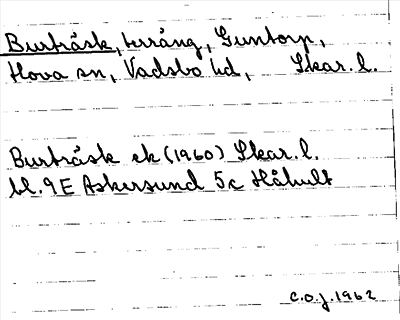 Burträsk, terräng, Guntorp,
Hova sn, Vadsbo hd, Skar. l.
Burträsk ek (1960) Skar. l.
bl. 9E Askersund 5c Håhult
C.O.J. 1962